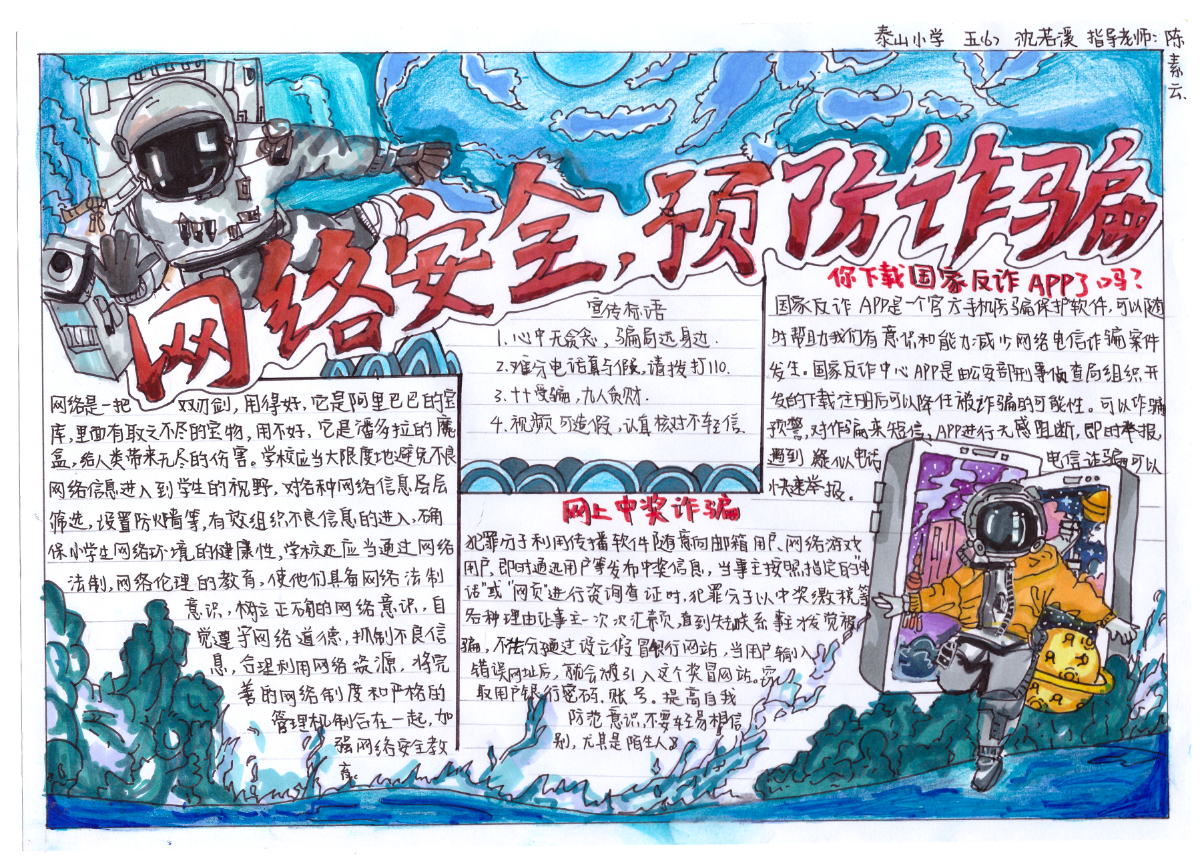 泰山小学 五(6) 沈若溪 指导老师:陈素云
网络安全,预防诈骗
网络是一把 双刃剑,用得好,它是阿里巴巴的宝
库,里面有取之不尽的宝物,用不好,它是潘多拉的魔
盒,给人类带来无尽的伤害。学校应当大限度地避免不良
网络信息进入到学生的视野,对各种网络信息层层
筛选,设置防火墙等,有效组织不良信息的进入,确
保小学生网络环境的健康性,学校还应当通过网络
法制,网络伦理的教育,使他们具备网络法制
意识,树立正确的网络意识,自
觉遵守网络道德,抵制不良信
息,合理利用网络资源,将完
善的网络制度和严格的
管理机制合在一起,加
强网络安全教
育。
宣传标语
1.心中无贪念,骗局远身边.
2.难分电话真与假,请拨打110.
3.十个受骗,九人贪财.
4.视频可造假,认真核对不轻信.
网上中奖诈骗
犯罪分子利用传播软件随意向邮箱用户、网络游戏
用户,即时通迅用户等发布中奖信息,当事主按照指定的"电
话"或"网页"进行咨询查证时,犯罪分子以中奖缴税等
各种理由让事主一次次汇款,直到失去联系事主发觉被
骗,不法分子通过设立假冒银行网站,当用户输入
错误网址后,就会被引入这个奖冒网站。
取用户银行密码、账号。提高自我
防范意识,不要轻易相信
别,尤其是陌生人
你下载国家反诈APP了吗?
国家反诈APP是一个官方手机防骗保护软件,可以随
时帮助我们有意识和能力减少网络电信诈骗案件
发生。国家反诈中心APP是由公安部刑事侦查局组织开
发的下载注册后可以降低被诈骗的可能性。可以诈骗
预警,对诈骗来短信、APP进行无感阻断,即时举报,
遇到疑似电话 电信诈骗可以
快速举报。